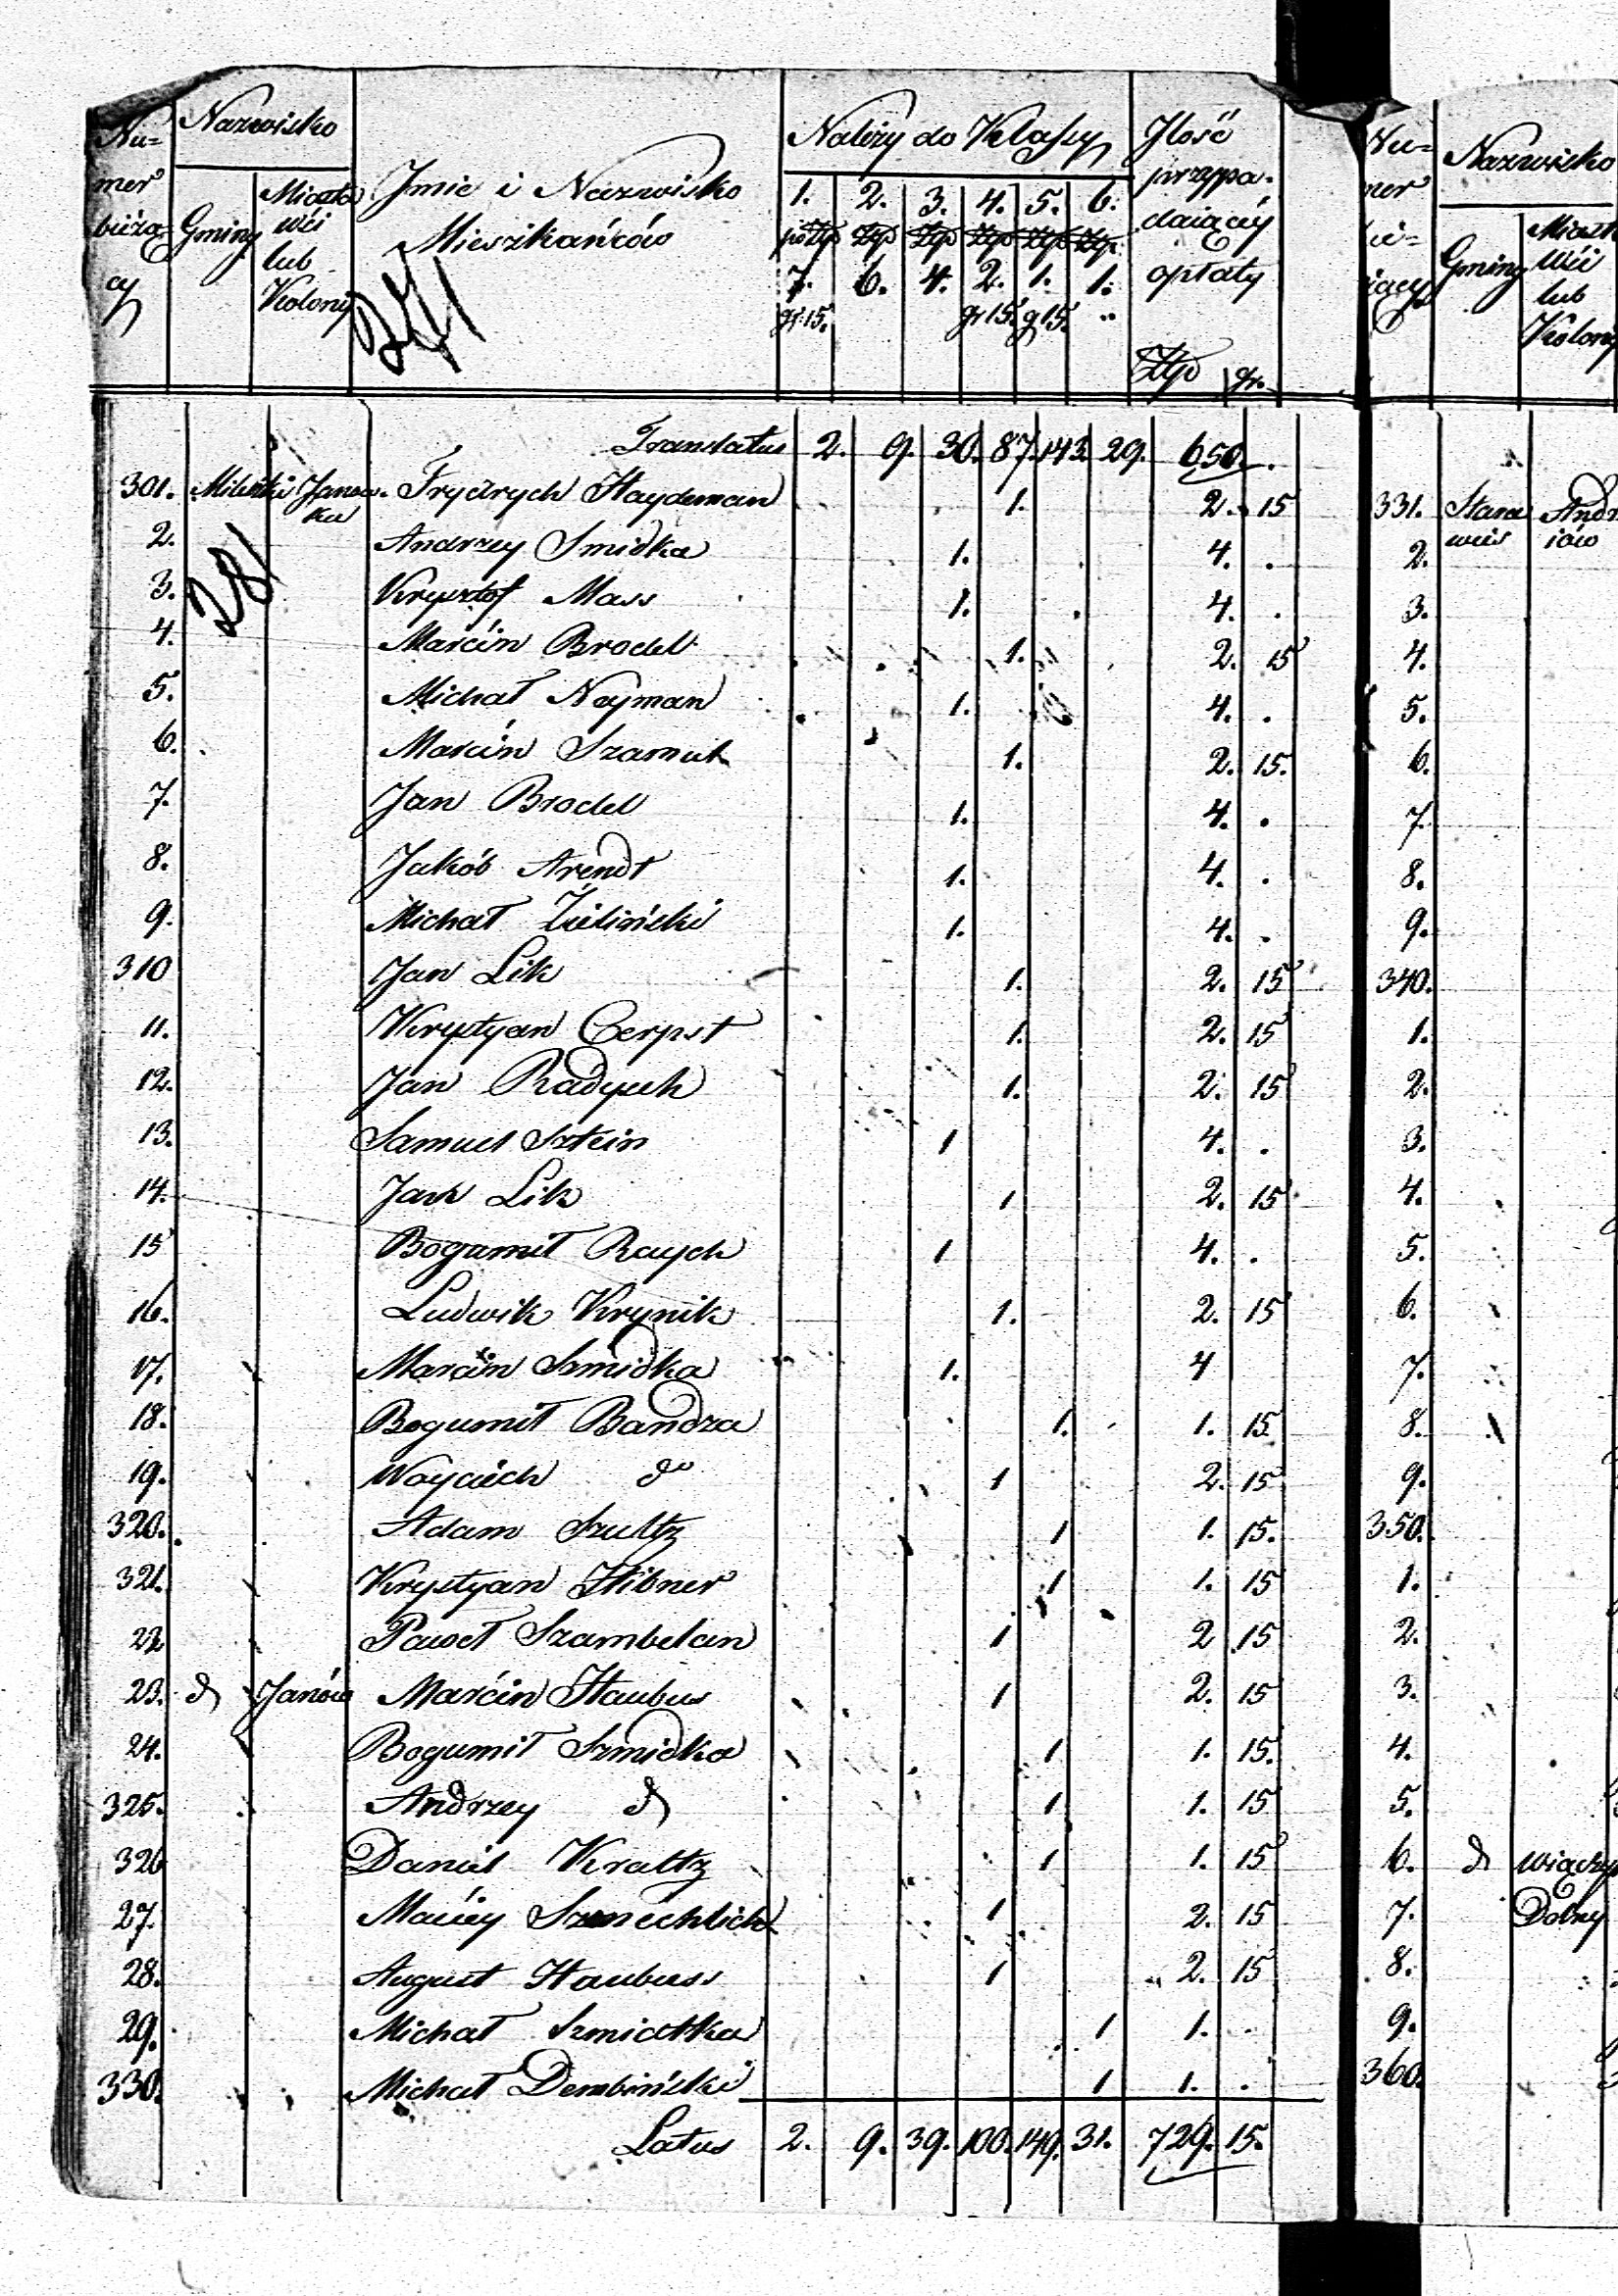 Numer bieżący | Nazwisko | Imie i Nazwisko Mieszkańców | Należy do Klassy | Jlość przypadaiącéy opłaty
Gminy | Miasta wśi lub Kolonij | 1. | 2. | 3. | 4. | 5. | 6.
po Złp | Złp | Złp | Złp | Złp | Złp
7. | 6. | 4. | 2. | 1. | 1.
gr 15. | gr 15. | g 15. | Złp | gr.
Translatus 2. 9. 30. 87. 143. 29. 650. .
301. Frydrych Haydeman 1. 2. 15
2. Andrzey Smidka 1. 4. .
3. Krysztof Mass 1. 4. .
4. Marcin Brodel 1. 2. 15
5. Michał Neyman 1. 4. .
6. Marcin 1. 2. 15.
7. Jan Brodel 1. 4. .
8. Jakób Arendt 1. 4. .
9. Michał Zieliński 1. 4. .
310 Jan Lik 1. 2. 15
11. Krystyan Cerpst 1. 2. 15
12. Jan 1. 2. 15
13. Samuel Sztein 1 4. .
14. Jan Lik 1 2. 15
15 Bogumił Raych 1 4. .
16. Ludwik Krynik 1. 2. 15
17. Marcin Szmidka 1. 4
18. Bogumił Bandza 1. 1. 15
19. Woyciech do 1 2. 15
320. Adam Szultz 1 1. 15.
321. Krystyan Hibner 1 1. 15
22 Paweł Szambelan 1 2 15
23. d Janów Marcin Haubus 1 2. 15
24. Bogumił Szmidka 1 1. 15.
325. Andrzey d 1 1. 15
326 Daniel Kraltz 1 1. 15
27. Maciey 1 2. 15
28. August Haubuss 1 2. 15
29. Michał Szmidtka 1 1. .
330. Michał Dembiński 1 1. .
Latus 2. 9. 39. 100. 149. 31. 729. 15.
281
Nazwisko
Gminy
lub
331. Stara wieś
2.
3.
4.
5.
6.
7.
8.
9.
340.
1.
2.
3.
4.
5.
6.
7.
8.
9.
350.
1.
2.
3.
4.
5.
6. d
7. Dolny
8.
9.
360.